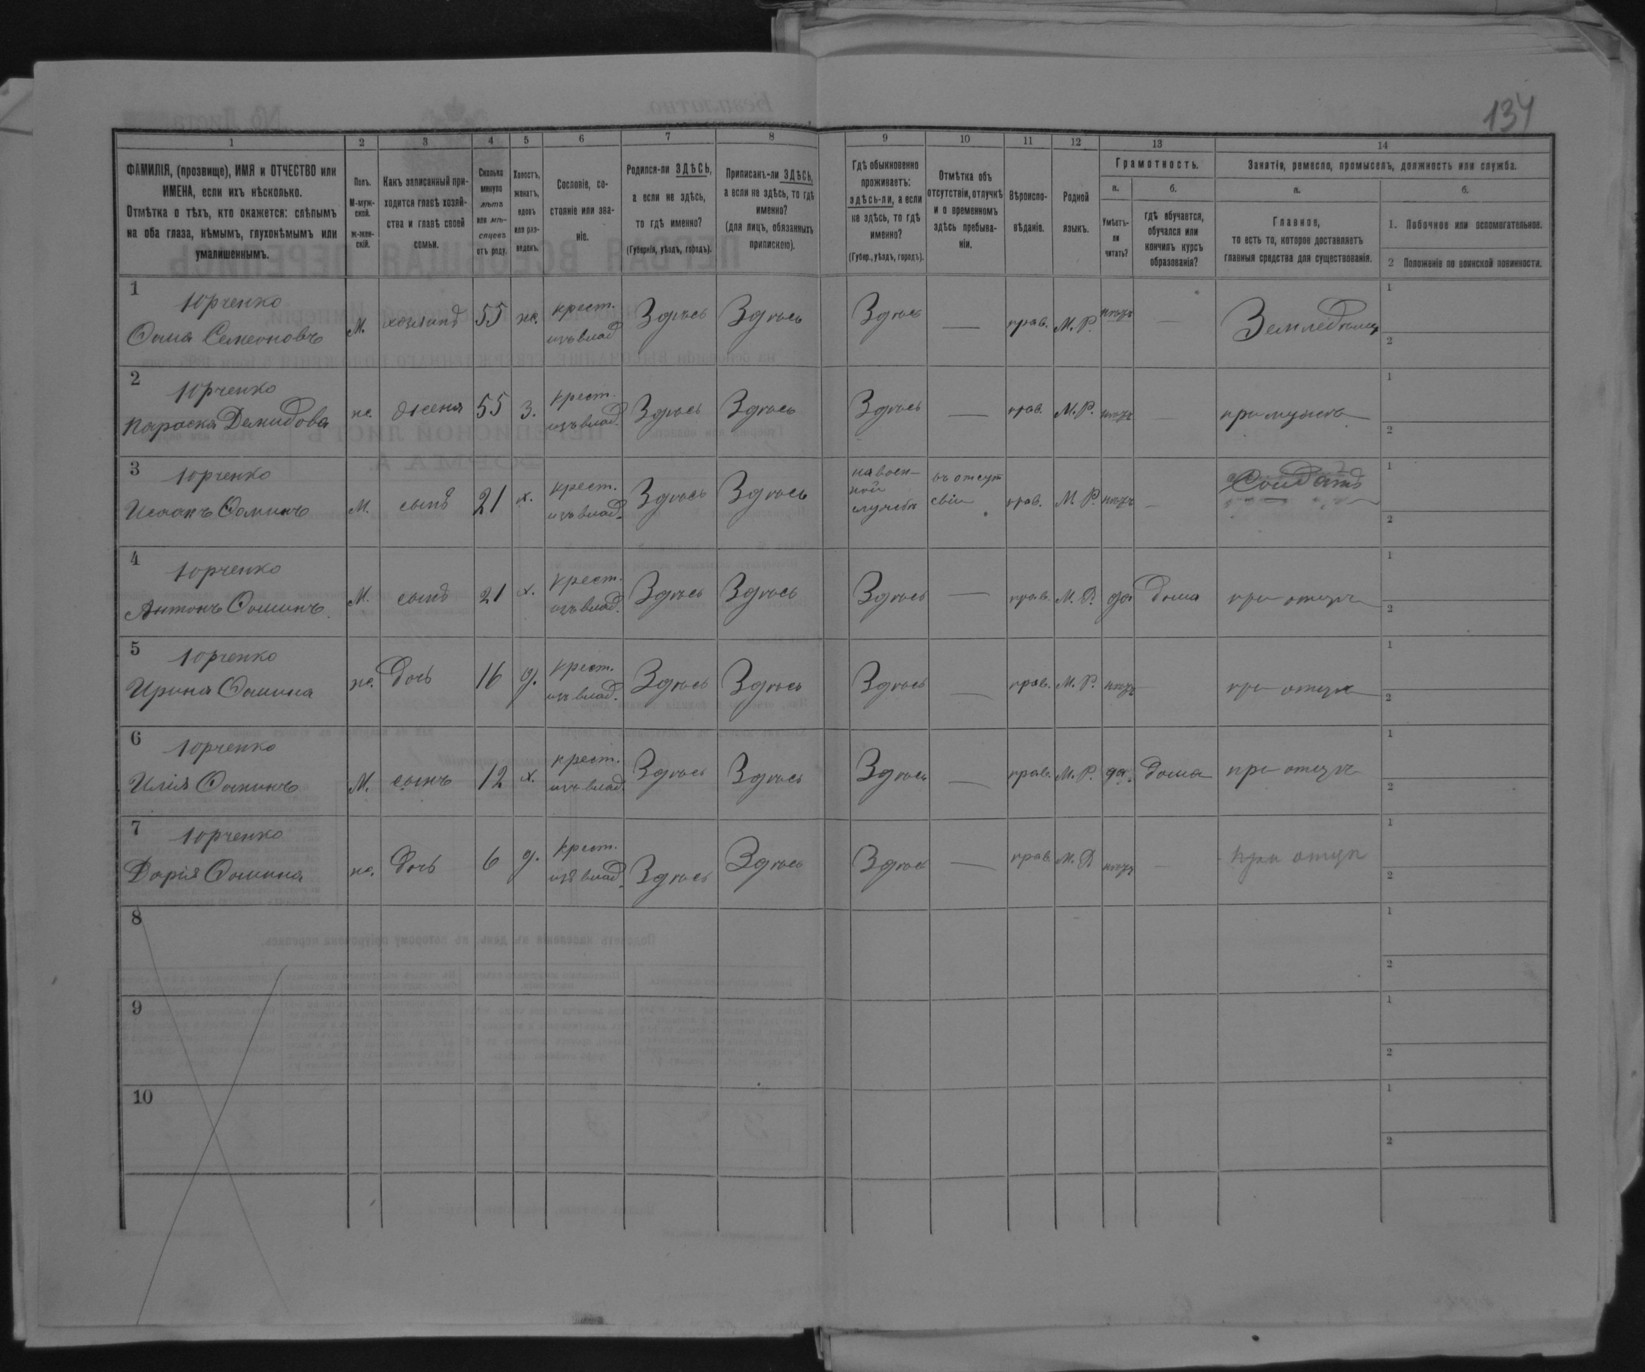 134
1 2 3 4 5 6 7 8 9 10 11 12 13 14
ФАМИЛІЯ, (прозвище), ИМЯ и ОТЧЕСТВО или
ИМЕНА, если ихъ нѣсколько.
Отмѣтка о тѣхъ, кто окажется: слѣпымъ
на оба глаза, нѣмымъ, глухонѣмымъ или
умалишеннымъ.
Полъ.
М-муж-
ской.
ж-жен-
скій.
Какъ записанный при-
ходится главѣ хозяй-
ства и главѣ своей
семьи.
Сколько
минуло
лѣтъ
или мѣ-
сяцевъ
отъ роду.
Холостъ,
женатъ,
вдовъ
или раз-
веденъ.
Сословіе, со-
стояніе или зва-
ніе.
Родился-ли ЗДѢСЬ,
а если не здѣсь,
то гдѣ именно?
(Губернія, уѣздъ, городъ).
Приписанъ-ли ЗДѢСЬ,
а если не здѣсь, то гдѣ
именно?
(для лицъ, обязанныхъ
припискою).
Гдѣ обыкновенно
проживаетъ:
здѣсь-ли, а если
не здѣсь, то гдѣ
именно?
(Губер., уѣздъ, городъ).
Отмѣтка объ
отсутствіи, отлучкѣ
и о временномъ
здѣсь пребыва-
ніи.
Вѣроиспо-
вѣданіе.
Родной
языкъ.
Грамотность.
а.
Умѣетъ-
ли
читать?
б.
гдѣ обучается,
обучался или
кончилъ курсъ
образованія?
Занятіе, ремесло, промыселъ, должность или служба.
а.
Главное,
то есть то, которое доставляетъ
главныя средства для существованія.
б.
1. Побочное или вспомогательное.
2 Положеніе по воинской повинности.
1
Юрченко
Ѳома Семеоновъ
М. хозяинъ 55 же. крест.
изъ влад. Здѣсь Здѣсь Здѣсь — прав. М. Р. нѣтъ — Земледѣлецъ
1
2
2
Юрченко
Параска Демидова
же. жена 55 з. крест.
изъ влад. Здѣсь Здѣсь Здѣсь — прав. М. Р. нѣтъ — при мужѣ
1
2
3
Юрченко
Исаакъ Ѳоминъ
М. сынъ 21 х. крест.
изъ влад. Здѣсь Здѣсь на воен-
ной
службѣ
въ отсут
свіи прав. М. Р. нѣтъ — Солдатъ
1
2
4
Юрченко
Антонъ Ѳоминъ.
М. сынъ 21 х. крест.
изъ влад. Здѣсь Здѣсь Здѣсь — прав. М. Р. да дома при отцѣ
1
2
5
Юрченко
Ирина Ѳомина
же. дочь 16 д. крест.
изъ влад. Здѣсь Здѣсь Здѣсь — прав. М. Р. нѣтъ — при отцѣ
1
2
6
Юрченко
Илія Ѳоминъ
М. сынъ 12 х. крест.
изъ влад. Здѣсь Здѣсь Здѣсь — прав. М. Р. да. дома при отцѣ
1
2
7
Юрченко
Дарія Ѳомина
же. дочь 6 д. крест.
изъ влад. Здѣсь Здѣсь Здѣсь — прав. М. Р. нѣтъ — при отцѣ
1
2
8
1
2
9
1
2
10
1
2